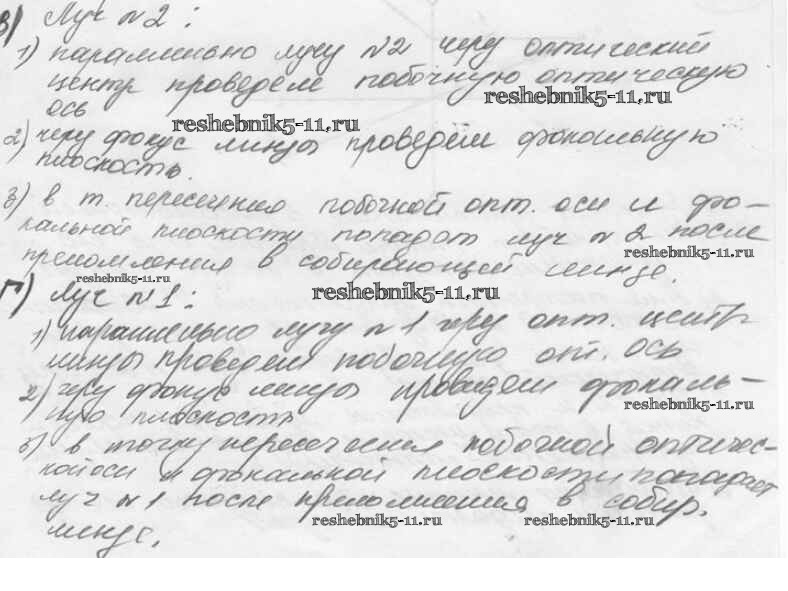 в) Луч №2:
1) параллельно лучу №2 через оптический
центр проведем побочную оптическую
ось
reshebnik5-11.ru
reshebnik5-11.ru
2) через фокус линзы проведём фокальную
плоскость.
3) в т. пересечения побочной опт. оси и фо-
кальной плоскости попадает луч №2 после
reshebnik5-11.ru
преломления в собирающей линзе.
reshebnik5-11.ru
г) Луч №1:
reshebnik5-11.ru
1) параллельно лучу №1 через опт. центр
линзы проведем побочную опт. ось
2) через фокус линзы проведем фокаль-
reshebnik5-11.ru
ную плоскость
3) в точку пересечения побочной оптичес-
кой оси и фокальной плоскости попадает
луч №1 после преломления в собир.
reshebnik5-11.ru
reshebnik5-11.ru
линзе.